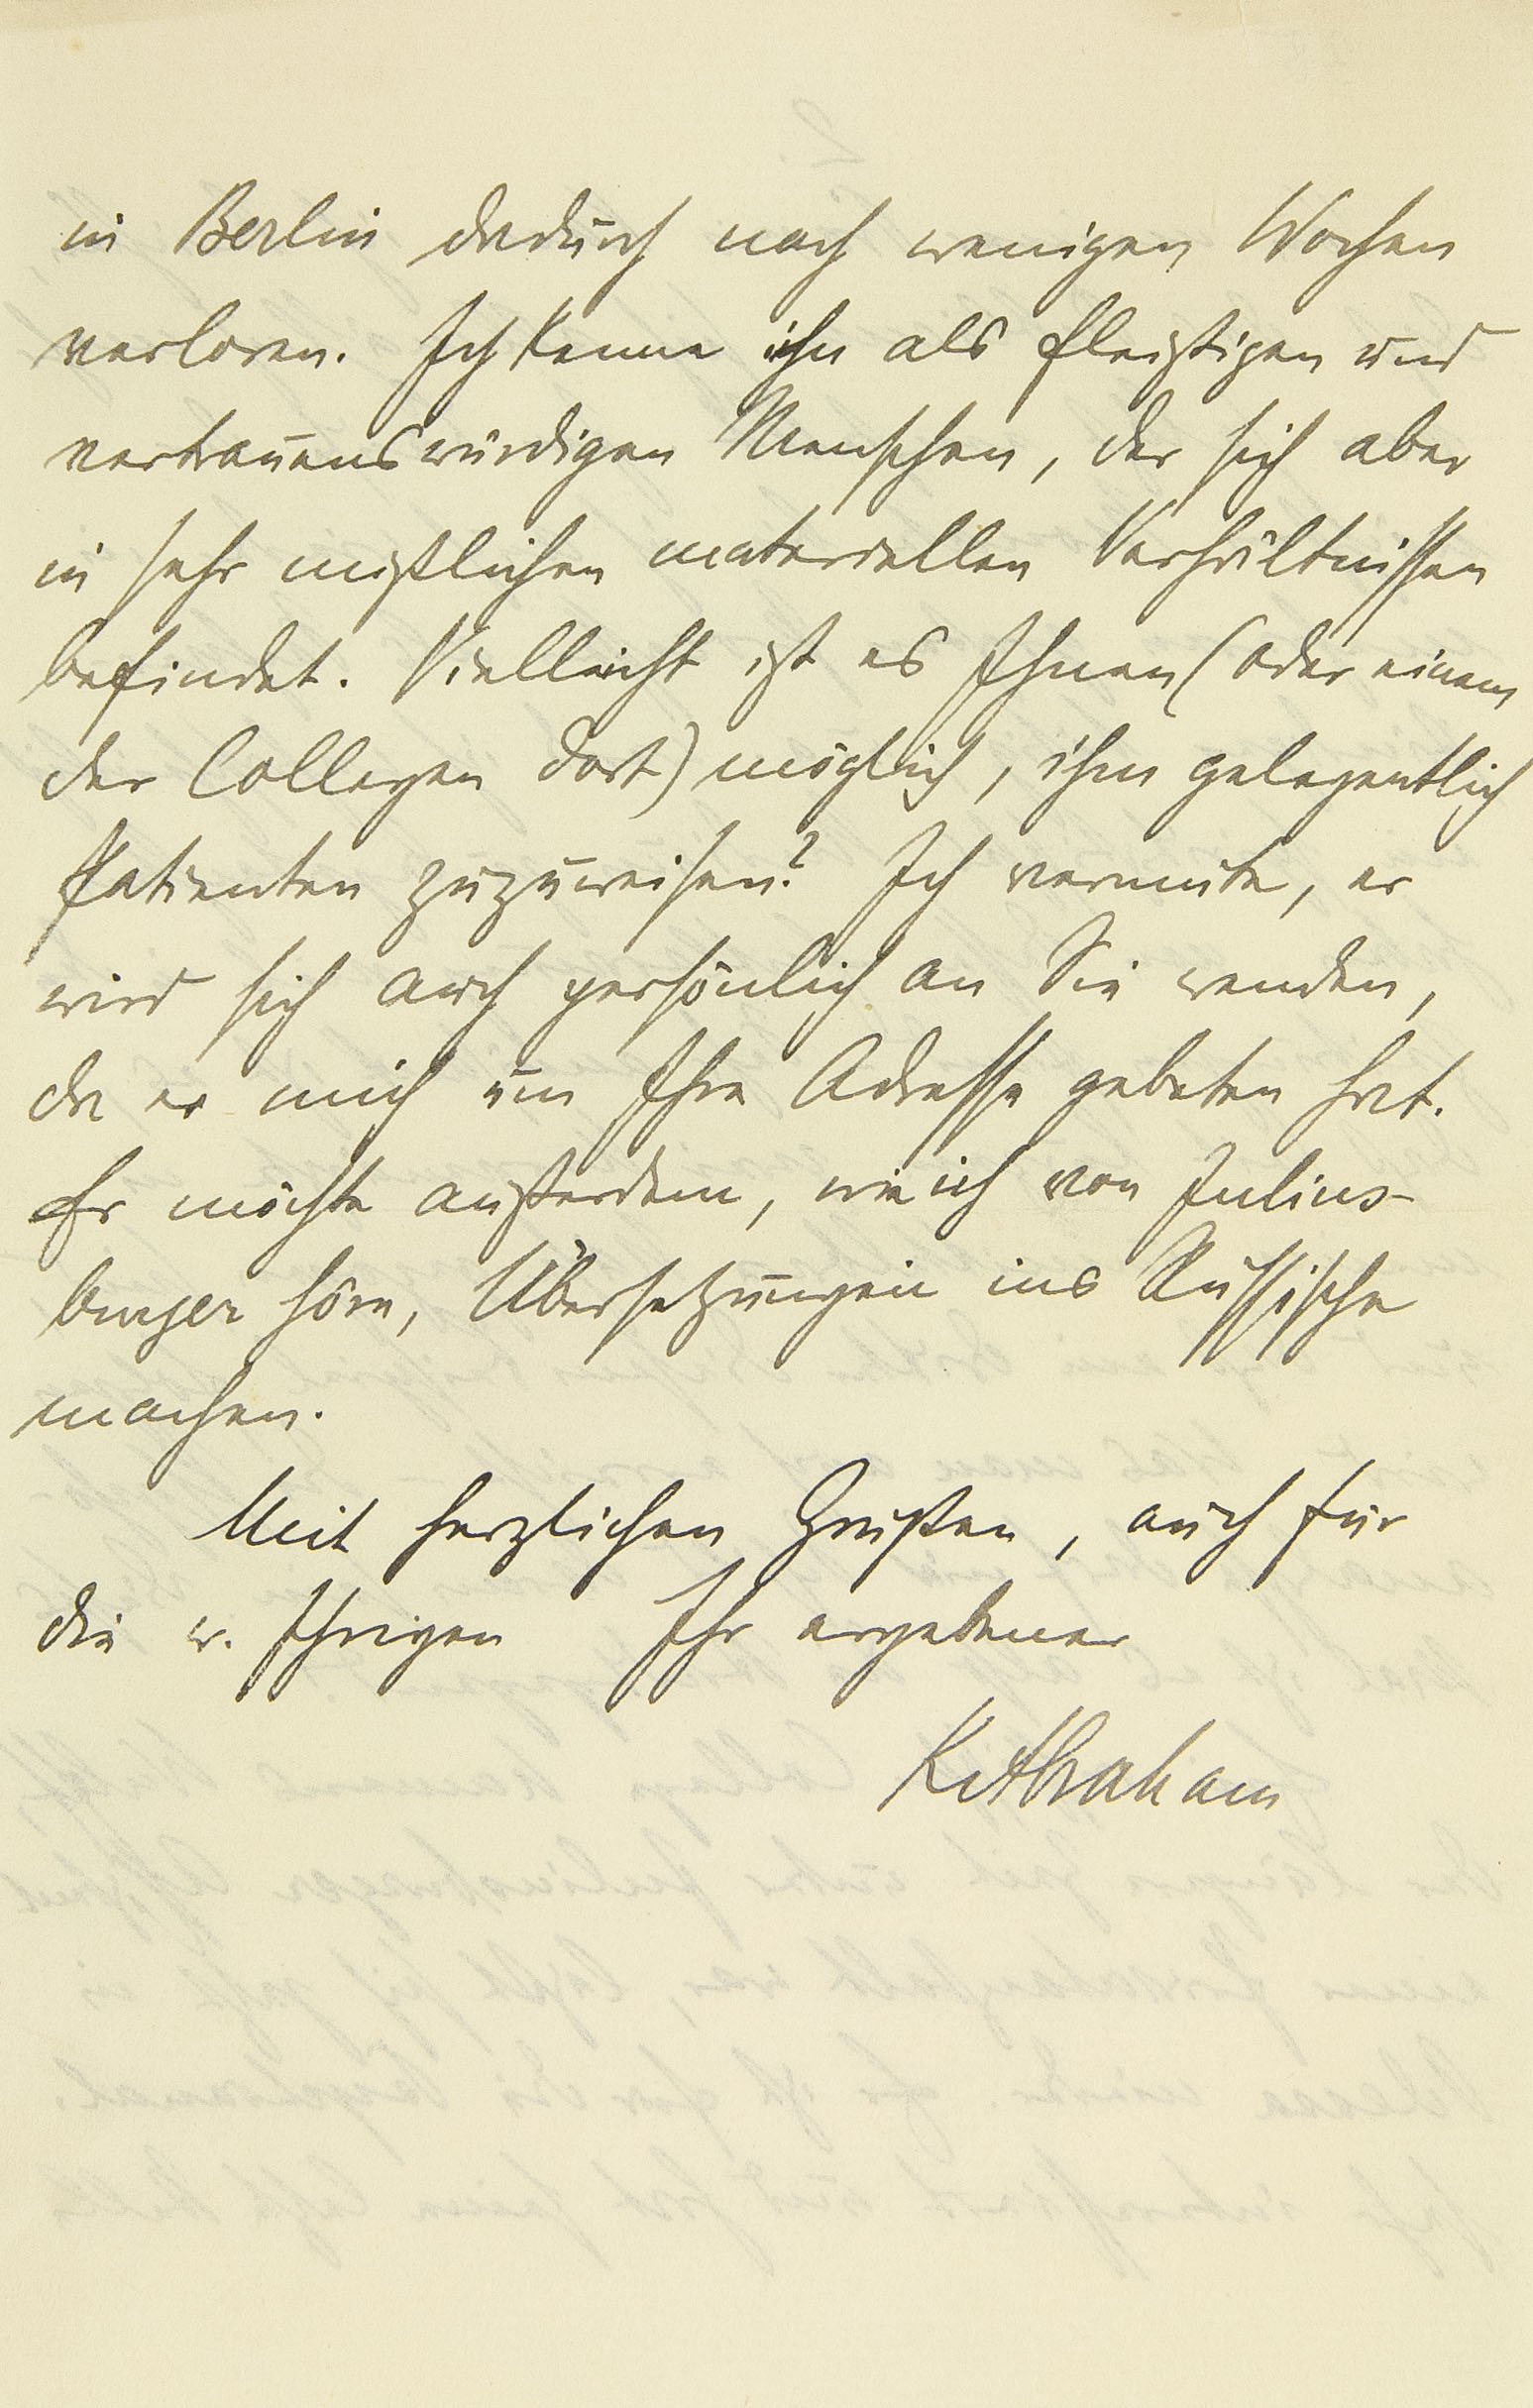 in Berlin dadurch nach wenigen Wochen
verloren. Ich kenne ihn als fleißigen und
vertrauenswürdigen Menschen, der sich aber
in sehr mißlichen materiellen Verhältnissen
befindet. Vielleicht ist es Ihnen (oder einem
der Collegen dort) möglich, ihm gelegentlich
Patienten zuzuweisen? Ich vermute, er
wird sich auch persönlich an Sie wenden,
da er mich um Ihre Adresse gebeten hat.
Er möchte außerdem, wie ich von Julius-
burger höre, Übersetzungen ins Russische
machen.
Mit herzlichen Grüßen, auch für
die w. Ihrigen Ihr ergebener
K. Abraham